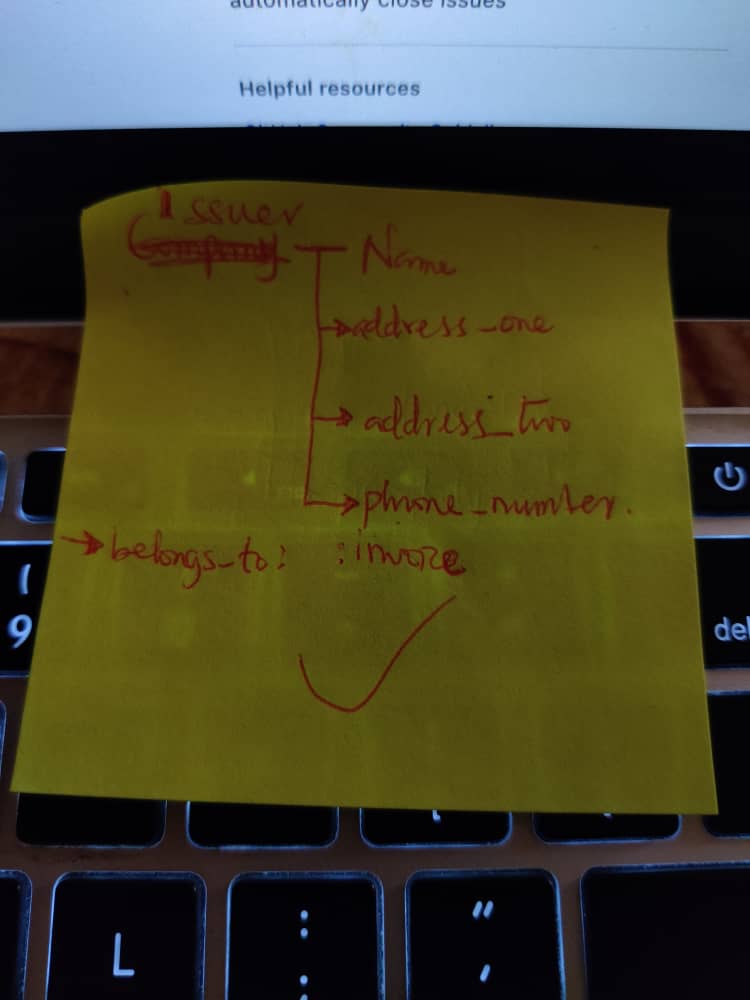 automatically close issues
Helpful resources
Issuer
Company
Name
address_one
address_two
phone_number.
belongs_to: :invoice
(
9
del
L
:
;
"
'